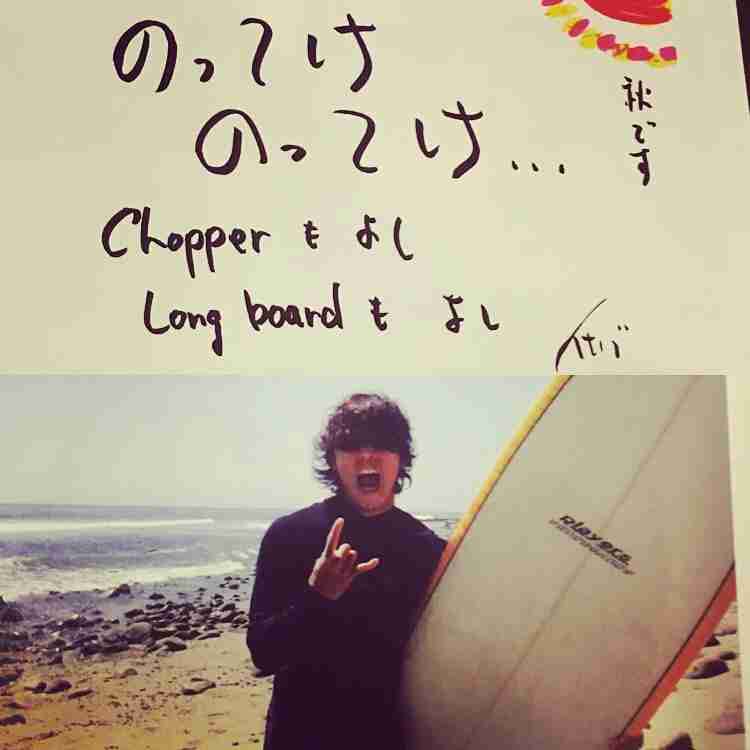 のってけ
のってけ...
Chopper も よし
Long board も よし
秋です